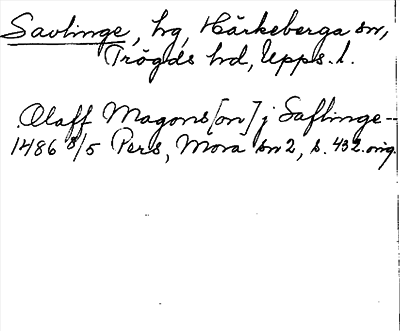 Savlinge, hg, Härkeberga sn,
Trögds hd, Upps. l.
Olaff Magons[on] j Saflinge--
1486 8/5 Pers, Mora sn 2, s. 432. orig.